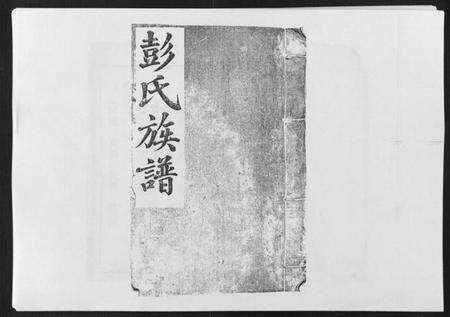 彭氏族譜